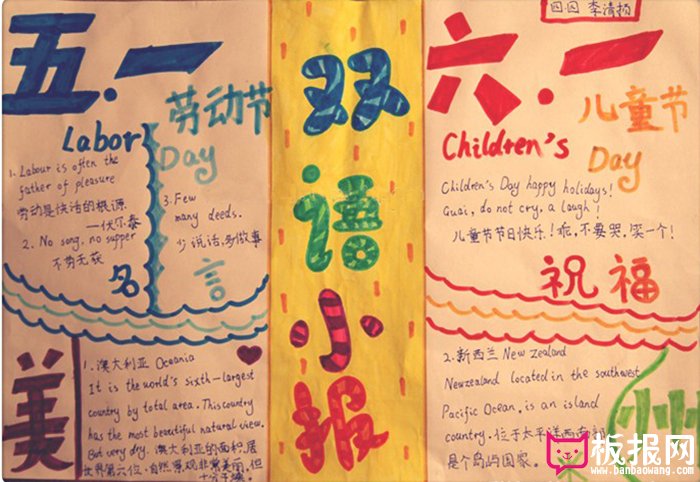 五.一
劳动节
Labor
Day
1. Labour is often the
father of pleasure
劳动是快活的根源
—伏尔泰
2. No song, no supper
不劳无获
3. Few
many deeds.
少说话,多做事
名言
双语小报
四.四 李清扬
六.一
儿童节
Children's
Day
Children's Day happy holidays!
Guai, do not cry, a laugh!
儿童节节日快乐!乖,不要哭,笑一个!
祝福
美
1. 澳大利亚 Oceania
It is the world's sixth-largest
country by total area. This country
has the most beautiful natural view.
But very dry. 澳大利亚的面积,居
世界第六位,自然景观非常美丽,但
十分干燥
2. 新西兰 New Zealand
Newzealand located in the southwest
Pacific Ocean, is an island
country. 位于太平洋西南部
是个岛屿国家.
洲
板报网
www.banbaowang.com